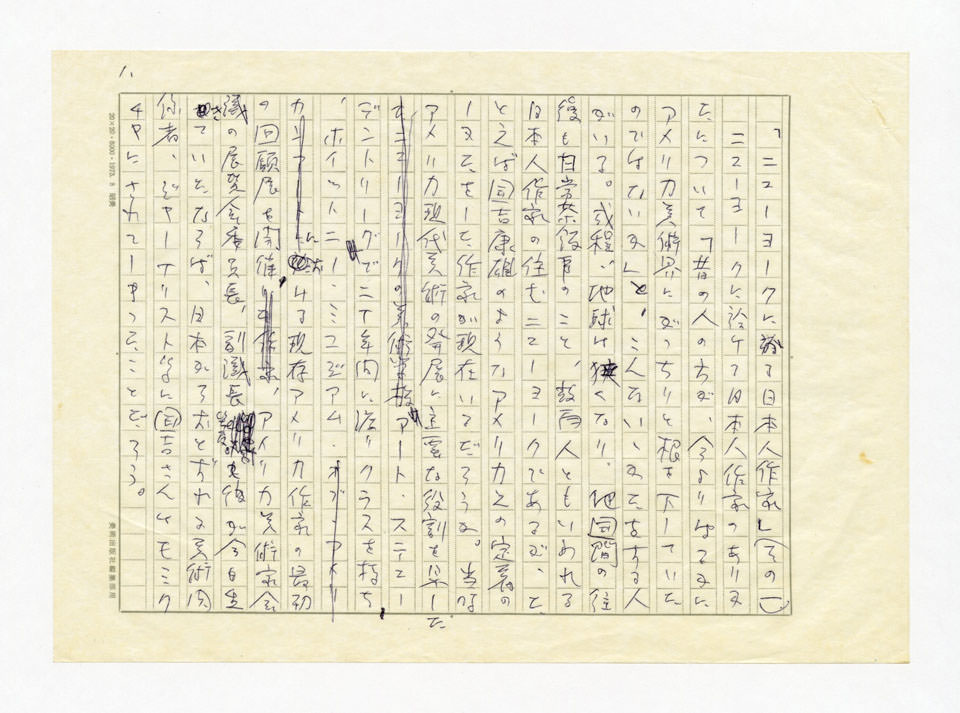 1.
「ニューヨークに於る日本人作家」(その一)
ニューヨークに於ける日本人作家のありか
たについて「昔の人の方が、今よりはるかに
アメリカ美術界にがっちりと根を下していた
のではないか」と、こんないいかたをする人
がいる。成程、地球は狭くなり、他国間の往
復も日常茶飯事のこと、数百人ともいわれる
日本人作家の住むニューヨークであるが、た
とえば国吉康雄のようなアメリカえの定着の
しかたをした作家が現在いるだろうか。当時
アメリカ現代美術の発展に主要な役割を果した
アート・ステュー
デントリーグで二十年間に渡りクラスを持ち、
ホイットニー・ミュゼアム
に於ける現存アメリカ作家の最初
の回顧展を開催、アメリカ美術家会
議の展覧会委員長、副議長 も彼が今日生
きていたならば、日本からおとずれる美術関
係者、ジャーナリスト等に国吉さんはモミク
チャにされてしまったことだろう。
20×20・8000・1973.8
美術出版社編集部用